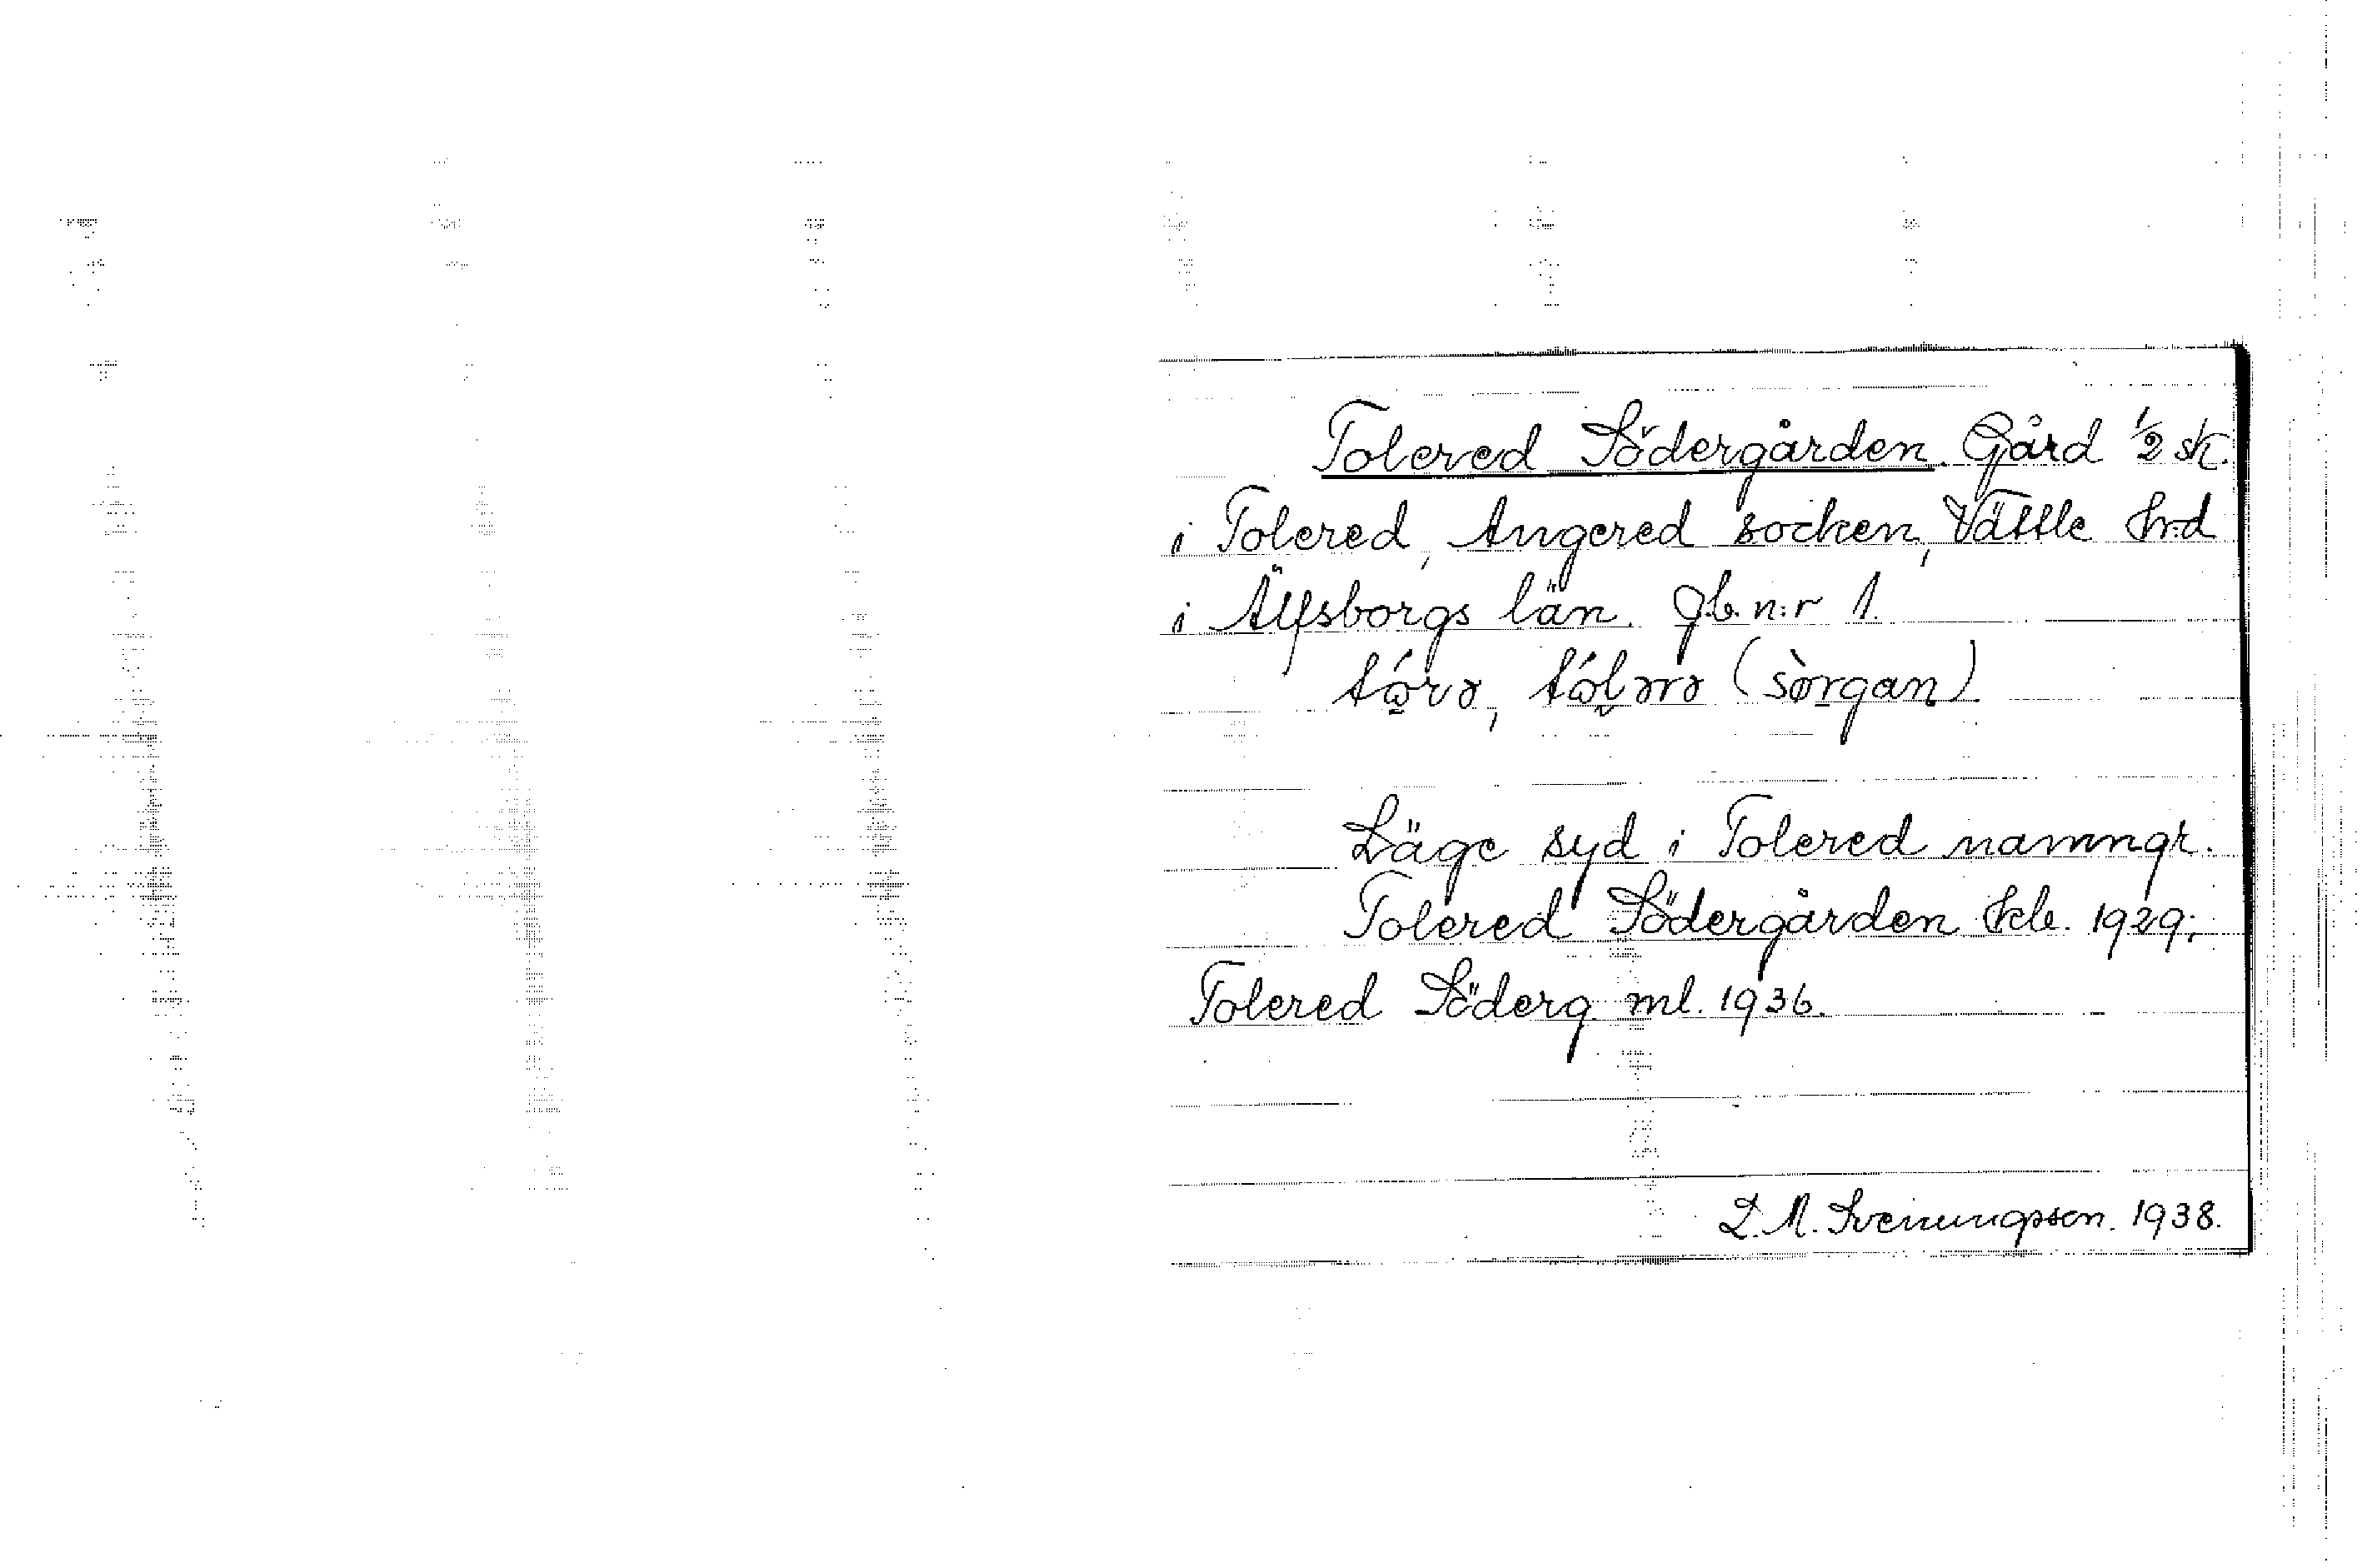 Tolered Södergården. Gård 1/2 sk.
i Tolered, Angered socken, Vättle hrd
i Älfsborgs län. Jb. n:r 1.
(sòrgan)
Läge syd i Tolered namngr.
Tolered Södergården Skb. 1929;
Tolered Söderg. ml. 1936.
L. M. Svenungsson. 1938.